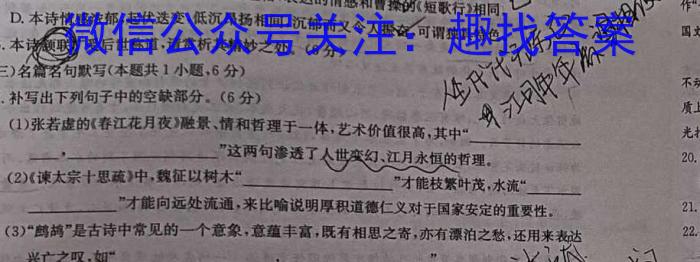 达的情感和曹操的《短歌行》相同
D.本诗情
低沉
扬相间
微信公众号关注：趣找答案
本诗颔联
(6分)
三)名篇名句默写(本题共1小题,6分)
.补写出下列句子中的空缺部分。(6分)
(1)张若虚的《春江花月夜》融景、情和哲理于一体,艺术价值很高,其中“
,
”这两句渗透了人世变幻、江月永恒的哲理。
(2)《谏太宗十思疏》中,魏征以树木“
”才能枝繁叶茂,水流“
”才能向远处流通,来比喻说明厚积道德仁义对于国家安定的重要性。
(3)“鹧鸪”是古诗中常见的一个意象,意蕴丰富,既有相思之寄,亦有漂泊之愁,还用来表达
兴亡之叹,如“
作“
国文
不动
质上
光打
20.
21.
22.